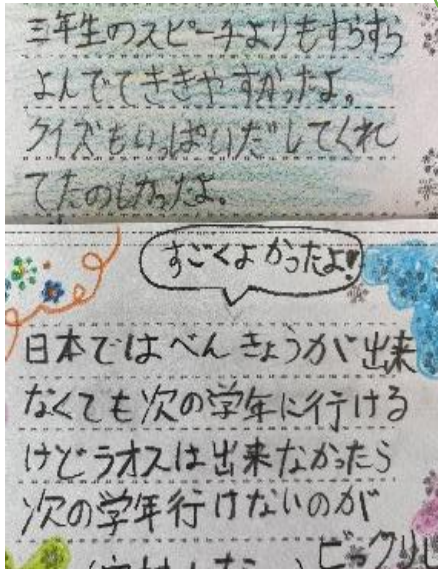 三年生のスピーチよりもすらすら
よんでてききやすかったよ。
クイズもいっぱいだしてくれ
てたのしかったよ。
すごくよかったよ!
日本ではべんきょうが出来
なくても次の学年に行ける
けどラオスは出来なかったら
次の学年行けないのが
ビックリし